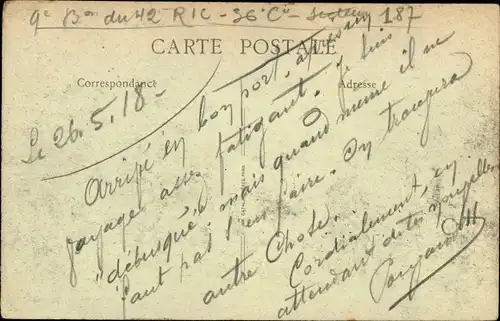 9e Bon du 42 RIC - 36e Cie - Secteur 187
CARTE POSTALE
Correspondance
Adresse
Le 26.5.18 -
Arrivé en bon port, après un
voyage assez fatigant. Je suis
"débusqué", mais quand même il ne
faut pas s'en faire. On trouvera
autre chose.
Cordialement, en
attendant de tes nouvelles